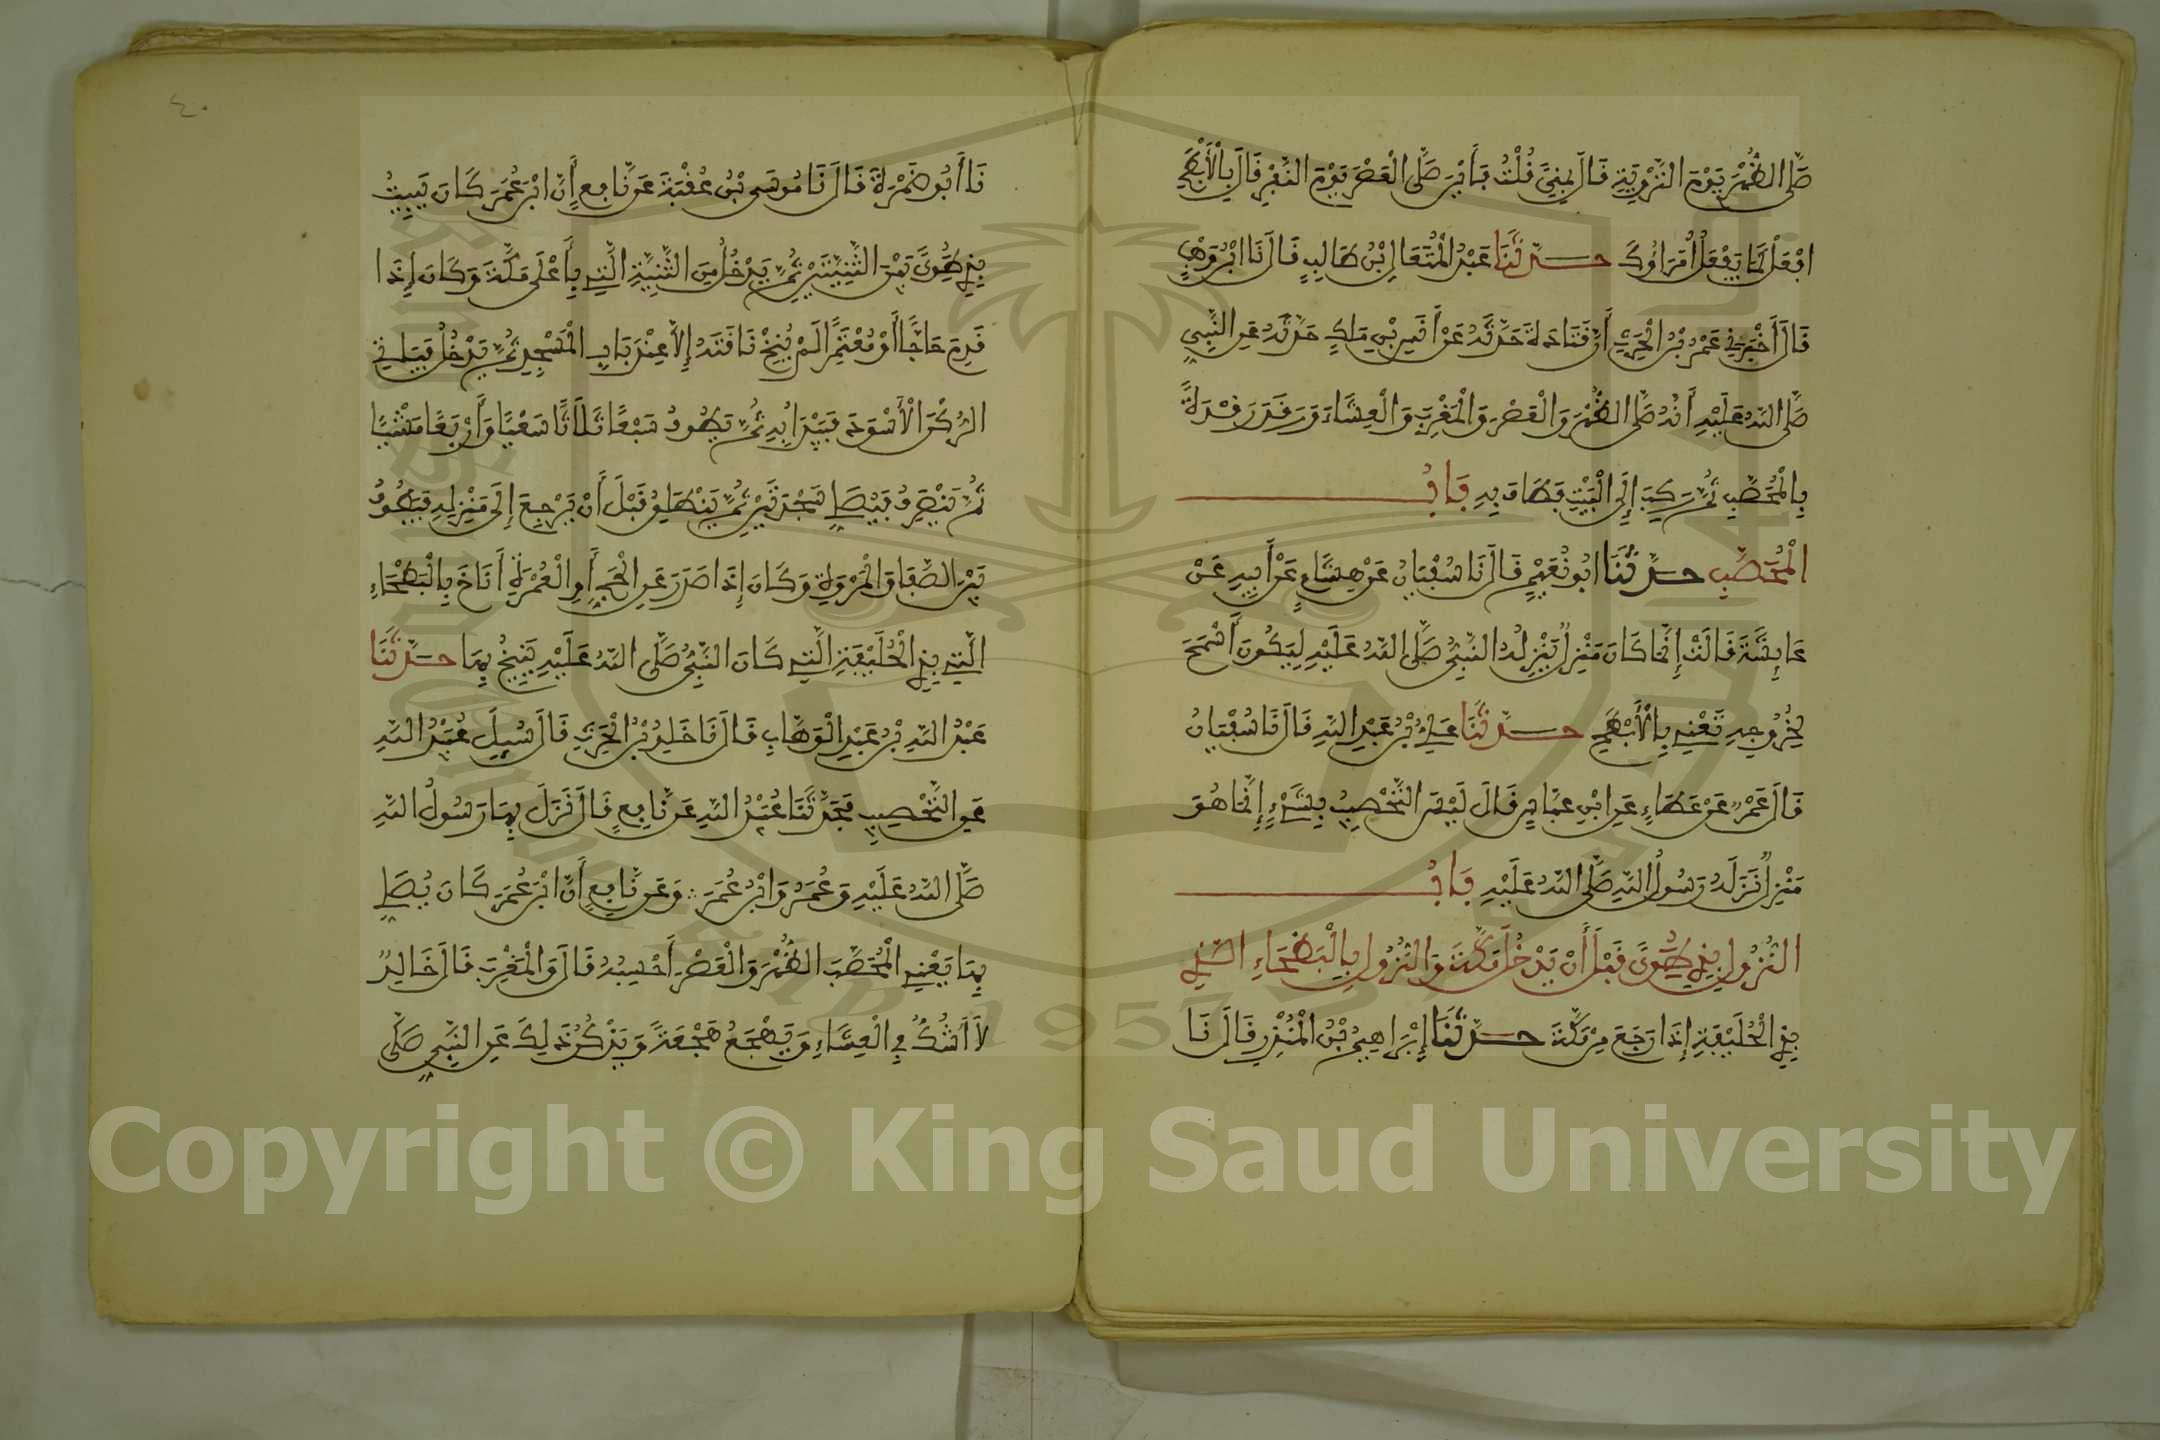 صَلَّى الظُّهْرَ يَوْمَ التَّرْوِيَةِ قَالَ بِمِنًى قُلْتُ فَأَيْنَ صَلَّى الْعَصْرَ يَوْمَ النَّفْرِ قَالَ بِالْأَبْطَحِ
افْعَلْ كَمَا يَفْعَلُ أُمَرَاؤُكَ حَدَّثَنَا عَبْدُ الْمُتَعَالِ بْنُ طَالِبٍ قَالَ نَا ابْنُ وَهْبٍ
قَالَ أَخْبَرَنِي عَمْرُو بْنُ الْحَرِثِ أَنَّ قَتَادَةَ حَدَّثَهُ عَنْ أَنَسِ بْنِ مَلِكٍ حَدَّثَهُ عَنِ النَّبِيِّ
صَلَّى اللَّهُ عَلَيْهِ أَنَّهُ صَلَّى الظُّهْرَ وَالْعَصْرَ وَالْمَغْرِبَ وَالْعِشَاءَ وَرَقَدَ رَقْدَةً
بِالْمُحَصَّبِ ثُمَّ رَكِبَ إِلَى الْبَيْتِ فَطَافَ بِهِ بَابُ
الْمُحَصَّبِ حَدَّثَنَا أَبُو نُعَيْمٍ قَالَ نَا سُفْيَانُ عَنْ هِشَامٍ عَنْ أَبِيهِ عَنْ
عَائِشَةَ قَالَتْ إِنَّمَا كَانَ مَنْزِلٌ يَنْزِلُهُ النَّبِيُّ صَلَّى اللَّهُ عَلَيْهِ لِيَكُونَ أَسْمَحَ
لِخُرُوجِهِ تَعْنِي بِالْأَبْطَحِ حَدَّثَنَا عَلِيُّ بْنُ عَبْدِ اللَّهِ قَالَ نَا سُفْيَانُ
قَالَ عَمْرٌو عَنْ عَطَاءٍ عَنِ ابْنِ عَبَّاسٍ قَالَ لَيْسَ التَّحْصِيبُ بِشَيْءٍ إِنَّمَا هُوَ
مَنْزِلٌ نَزَلَهُ رَسُولُ اللَّهِ صَلَّى اللَّهُ عَلَيْهِ بَابُ
النُّزُولِ بِذِي طُوًى قَبْلَ أَنْ يَدْخُلَ مَكَّةَ وَالنُّزُولِ بِالْبَطْحَاءِ الَّتِي
بِذِي الْحُلَيْفَةِ إِذَا رَجَعَ مِنْ مَكَّةَ حَدَّثَنَا إِبْرَاهِيمُ بْنُ الْمُنْذِرِ قَالَ نَا
٤٠
نَا أَبُو ضَمْرَةَ قَالَ نَا مُوسَى بْنُ عُقْبَةَ عَنْ نَافِعٍ أَنَّ ابْنَ عُمَرَ كَانَ يَبِيتُ
بِذِي طُوًى بَيْنَ الثَّنِيَّتَيْنِ ثُمَّ يَدْخُلُ مِنَ الثَّنِيَّةِ الَّتِي بِأَعْلَى مَكَّةَ وَكَانَ إِذَا
قَدِمَ حَاجًّا أَوْ مُعْتَمِرًا لَمْ يُنِخْ نَاقَتَهُ إِلَّا عِنْدَ بَابِ الْمَسْجِدِ ثُمَّ يَدْخُلُ فَيَأْتِي
الرُّكْنَ الْأَسْوَدَ فَيَبْدَأُ بِهِ ثُمَّ يَطُوفُ سَبْعًا ثَلَاثًا سَعْيًا وَأَرْبَعًا مَشْيًا
ثُمَّ يَنْصَرِفُ فَيُصَلِّي سَجْدَتَيْنِ ثُمَّ يَنْطَلِقُ قَبْلَ أَنْ يَرْجِعَ إِلَى مَنْزِلِهِ فَيَطُوفُ
بَيْنَ الصَّفَا وَالْمَرْوَةِ وَكَانَ إِذَا صَدَرَ عَنِ الْحَجِّ أَوِ الْعُمْرَةِ أَنَاخَ بِالْبَطْحَاءِ
الَّتِي بِذِي الْحُلَيْفَةِ الَّتِي كَانَ النَّبِيُّ صَلَّى اللَّهُ عَلَيْهِ يُنِيخُ بِهَا حَدَّثَنَا
عَبْدُ اللَّهِ بْنُ عَبْدِ الْوَهَّابِ قَالَ نَا خَلِدُ بْنُ الْحَرِثِ قَالَ سُئِلَ عُبَيْدُ اللَّهِ
عَنِ التَّحْصِيبِ فَحَدَّثَنَا عُبَيْدُ اللَّهِ عَنْ نَافِعٍ قَالَ نَزَلَ بِهَا رَسُولُ اللَّهِ
صَلَّى اللَّهُ عَلَيْهِ وَعُمَرُ وَابْنُ عُمَرَ ∴ وَعَنْ نَافِعٍ أَنَّ ابْنَ عُمَرَ كَانَ يُصَلِّي
بِهَا يَعْنِي الْمُحَصَّبَ الظُّهْرَ وَالْعَصْرَ أَحْسِبُهُ قَالَ وَالْمَغْرِبَ قَالَ خَالِدٌ
لَا أَشُكُّ فِي الْعِشَاءِ وَيَهْجَعُ هَجْعَةً وَيَذْكُرُ ذَلِكَ عَنِ النَّبِيِّ صَلَّى
Copyright © King Saud University
1957